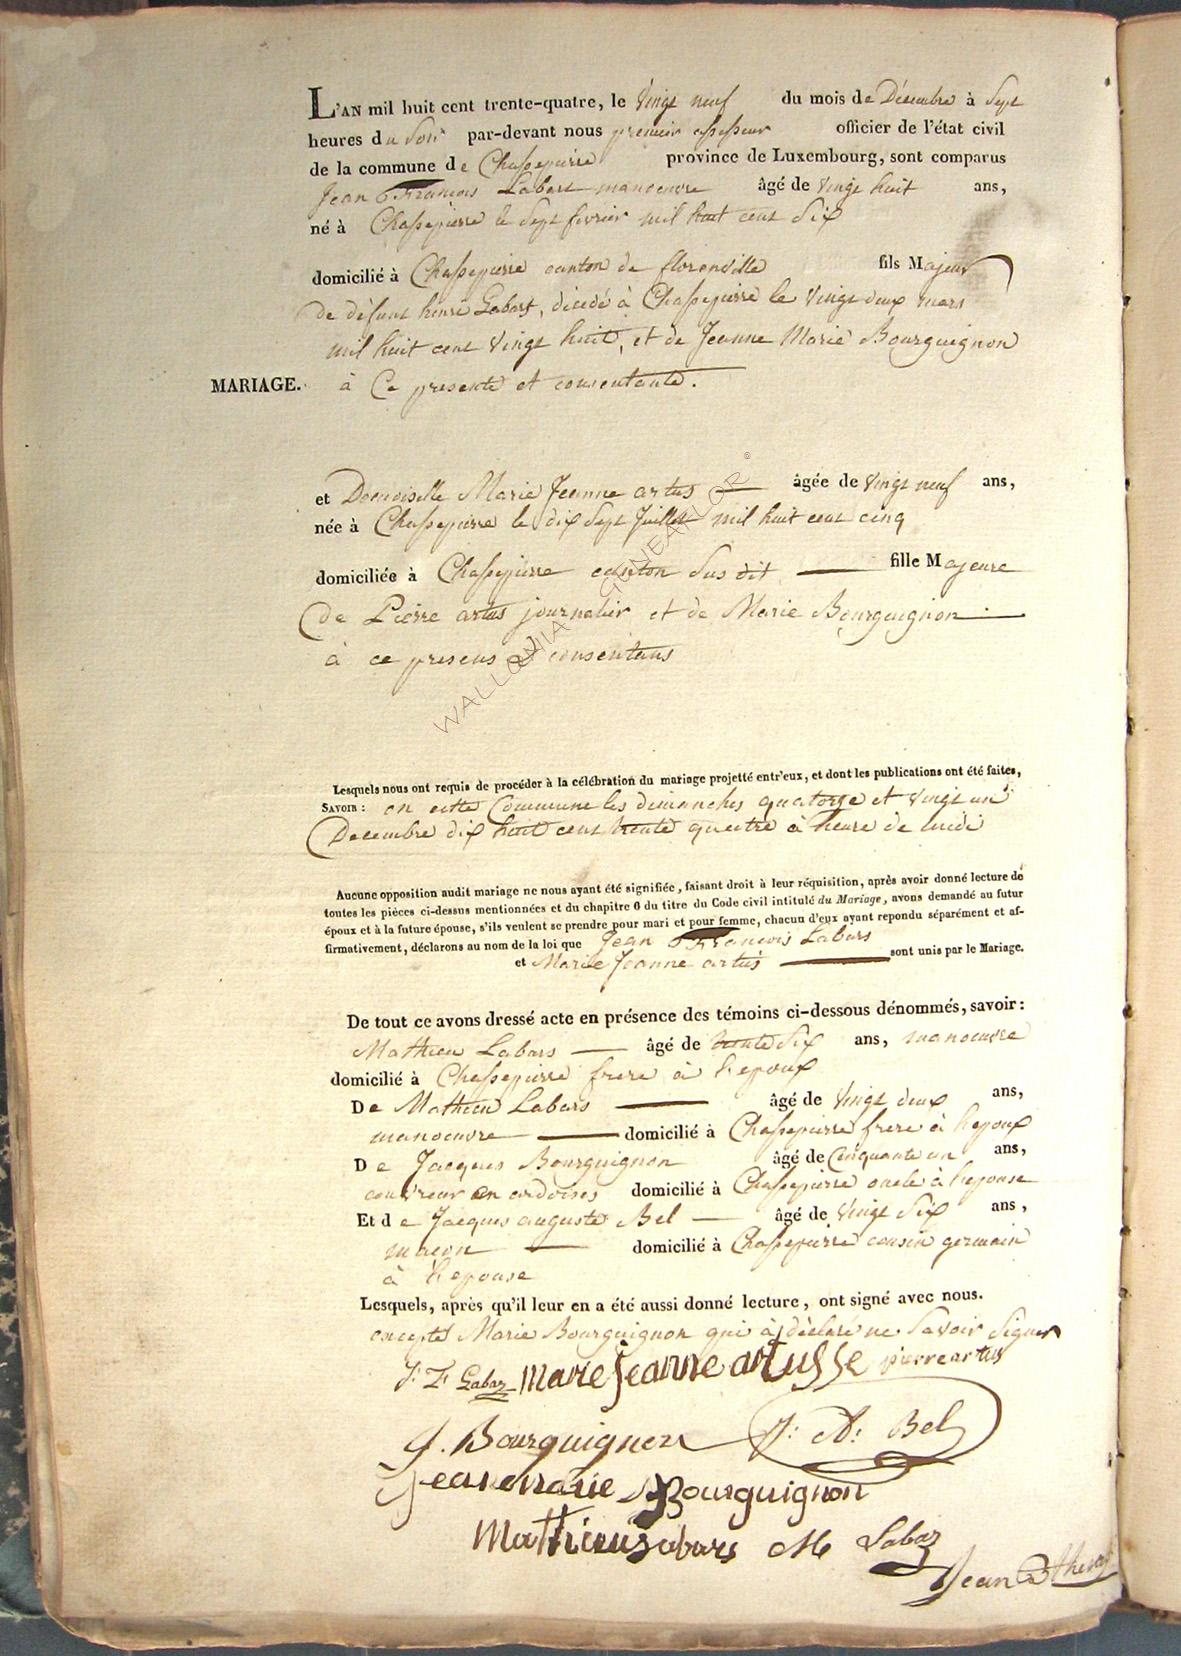 L'AN mil huit cent trente-quatre, le Vingt neuf du mois de Décembre à Sept
heures du Soir par-devant nous premier assesseur officier de l'état civil
de la commune de Chassepierre province de Luxembourg, sont comparus
Jean François Labart manoeuvre âgé de Vingt huit ans,
né à Chassepierre le Sept fevrier mil huit cent Six
domicilié à Chassepierre canton de florenville fils Majeur
De défunt henri Labart, décedé à Chassepierre le Vingt deux mars
mil huit cent Vingt huit, et de Jeanne Marie Bourguignon
MARIAGE. à Ce presente et consentante.
et Demoiselle Marie Jeanne artus âgée de Vingt neuf ans,
née à Chassepierre le dix Sept Juillet mil huit cent cinq
domiciliée à Chassepierre canton Sus dit fille Majeure
De Pierre artus journalier et de Marie Bourguignon
à ce presens et consentans
WALLONIA GENEALOR ©
Lesquels nous ont requis de procéder à la célébration du mariage projetté entr'eux, et dont les publications ont été faites,
SAVOIR : en cette Commune les dimanches quatorze et Vingt un
Decembre dix huit cent trente quatre à heure de midi
Aucune opposition audit mariage ne nous ayant été signifiée, faisant droit à leur réquisition, après avoir donné lecture de
toutes les pièces ci-dessus mentionnées et du chapitre 6 du titre du Code civil intitulé du Mariage, avons demandé au futur
époux et à la future épouse, s'ils veulent se prendre pour mari et pour femme, chacun d'eux ayant repondu séparément et af-
firmativement, déclarons au nom de la loi que Jean François Labars
et Marie Jeanne artus sont unis par le Mariage.
De tout ce avons dressé acte en présence des témoins ci-dessous dénommés, savoir :
Mathieu Labars âgé de trente Six ans, manoeuvre
domicilié à Chassepierre frere à l'epoux
De Mathieu Labars âgé de Vingt deux ans,
manoeuvre domicilié à Chassepierre frere à l'epoux
De Jacques Bourguignon âgé de Cinquante un ans,
couvreur en ardoises domicilié à Chassepierre oncle à l'epouse
Et de Jacques auguste Bel âgé de Vingt Six ans,
macon domicilié à Chassepierre cousin germain
à l'epouse
Lesquels, après qu'il leur en a été aussi donné lecture, ont signé avec nous.
excepté Marie Bourguignon qui à déclaré ne Savoir Signer
J. F. Labar marie Jeanne artusse pierre artus
J. Bourguignon J. A. Bel
Jeanemarie Bourguignon
Mathieu Labars M Labar
Jean